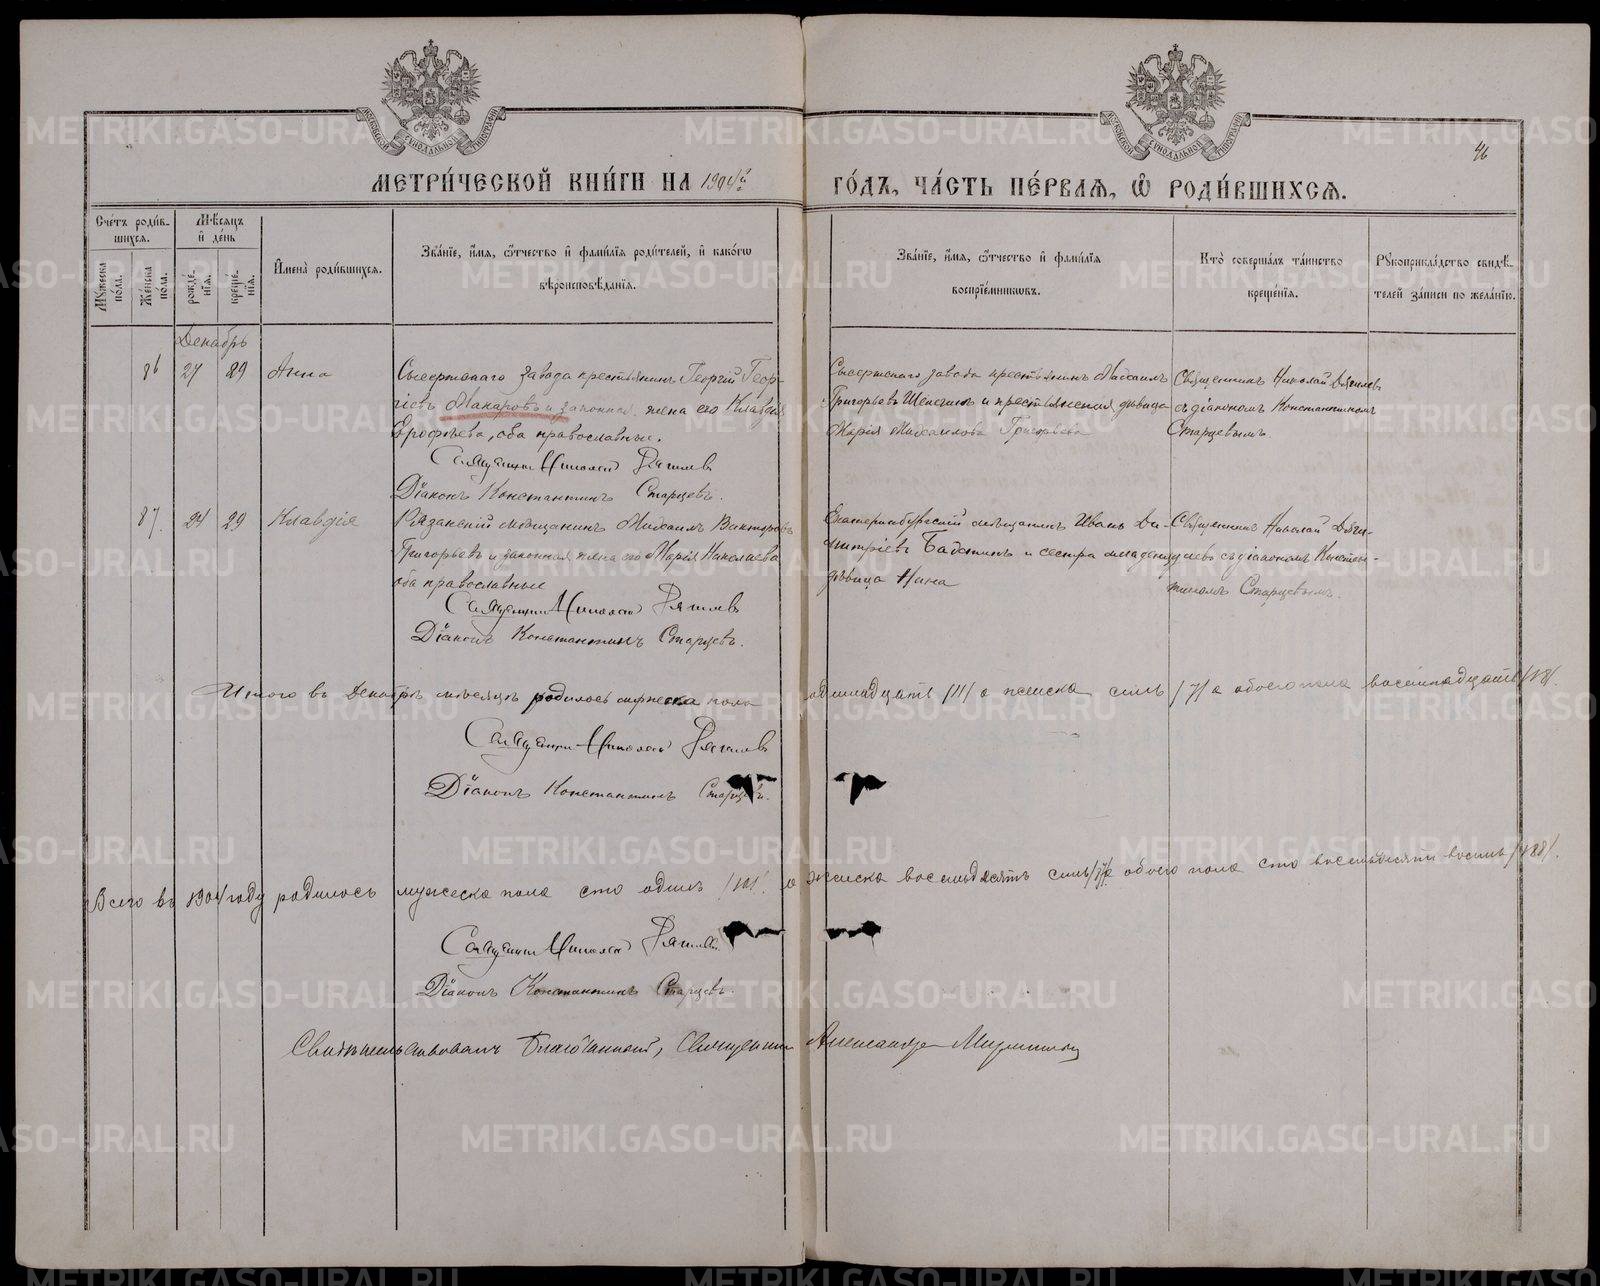 46
МЕТРИ́ЧЕСКОЙ КНИ́ГИ НА 1904й ГО́ДЪ, ЧА́СТЬ ПЕ́РВАѦ, Ѡ҆ РОДИ́ВШИХСѦ.
Сче́тъ роди́в-
шихся.
Мѣ́сяцъ
и҆ де́нь
Му́жеска по́ла.
Же́нска по́ла.
рожде́-нїѧ.
креще́-нїѧ.
И҆мена̀ роди́вшихся.
Зва́нїе, и҆́мя, ѻ҆́тчество и҆ фами́лїя роди́телей, и҆ како́гѡ
вѣроисповѣ́данїя.
Зва́нїе, и҆́мя, ѻ҆́тчество и҆ фами́лїя
воспрїе́мниковъ.
Кто̀ соверша́лъ та́инство
креще́нїя.
Рꙋкоприкла́дство свидѣ́-
телей за́писи по жела́нїю.
Декабрь
86 27 29 Анна
Сысертскаго завода крестьянинъ Георгій Геор-
гіевъ Макаровъ и законная жена его Клавдія
Ерофѣева, оба православные.
Священникъ Николай
Діаконъ Константинъ Старцевъ.
Сысертскаго завода крестьянинъ Михаилъ
Григорьевъ и крестьянская дѣвица
Марія Михаилова Григорьева
Священникъ Николай
съ діакономъ Константиномъ
Старцевымъ.
87. 24 29 Клавдія
Казанскій мѣщанинъ Михаилъ Викторовъ
Григорьевъ и законная жена его Марія Николаева
оба православные
Священникъ Николай
Діаконъ Константинъ Старцевъ.
Екатеринбургскій мѣщанинъ Иванъ Ди-
митріевъ и сестра младенца
дѣвица Нина
Священникъ Николай
съ діакономъ Констан-
тиномъ Старцевымъ.
Итого въ Декабрѣ мѣсяцѣ родилось мужеска пола одиннадцать /11/ а женска семь /7/ а обоего пола восемнадцать /18/.
Священникъ Николай
Діаконъ Константинъ Старцевъ.
Всего въ 1904 году родилось мужеска пола сто одинъ /101/ а женска восемьдесятъ семь /87/ а обоего пола сто восемьдесятъ восемь /188/.
Священникъ Николай
Діаконъ Константинъ Старцевъ.
Свидѣтельствовалъ Благочинный, Священникъ Александръ
METRIKI.GASO-URAL.RU